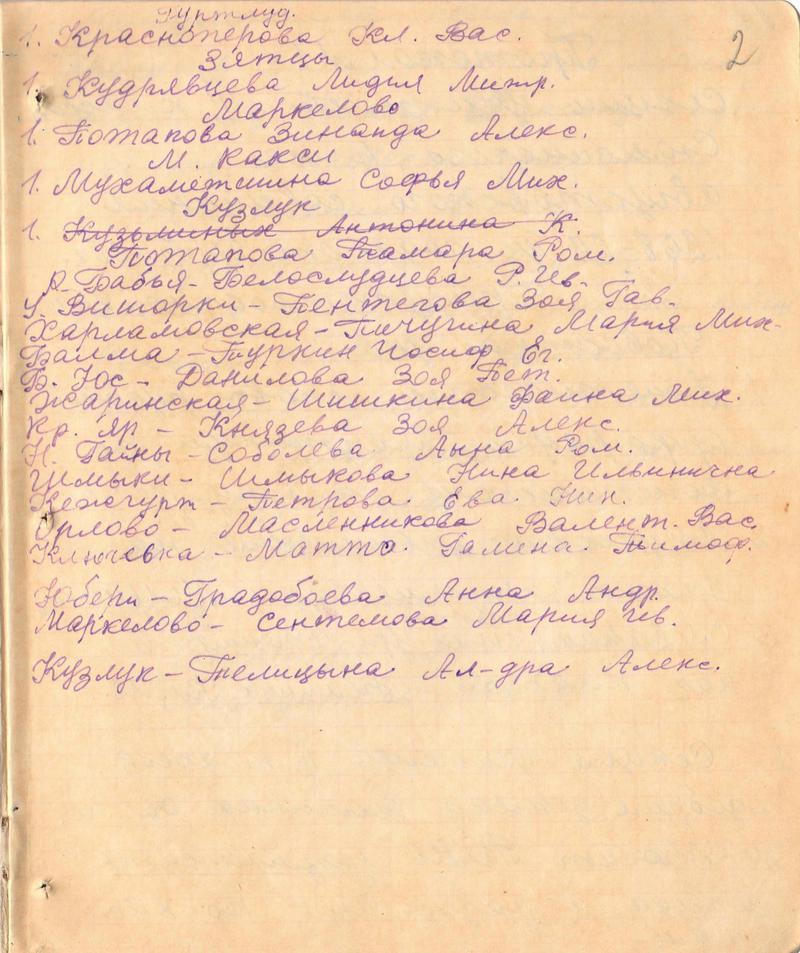 Гуртлуд.
2
1. Красноперова Кл. Вас.
Зятцы
1. Кудрявцева Лидия Митр.
Маркелово
1. Потапова Зинаида Алекс.
М. Какси
1. Мухаметшина Софья Мих.
Кузлук
1. Кузьминых Антонина К.
Потапова Тамара Ром.
Р-Бабья-Белослудцева Р. Гев.
У. Вишорки - Пентегова Зоя Гав.
Харламовская - Пичугина Мария Мих.
Балма - Туркин Иосиф Ег.
Б. Юс - Данилова Зоя Пет.
Жаринская - Шишкина Фаина Мих.
Кр. Яр - Князева Зоя Алекс.
Н. Гайны - Соболева Анна Ром.
Шмыки - Шмыкова Нина Ильинична
Кежгурт - Петрова Ева Ник.
Орлово - Масленникова Валент. Вас.
Ключевка - Галина Тимоф.
Юбери - Градобоева Анна Андр.
Маркелово - Сентемова Мария Гев.
Кузлук - Телицына Ал-дра Алекс.